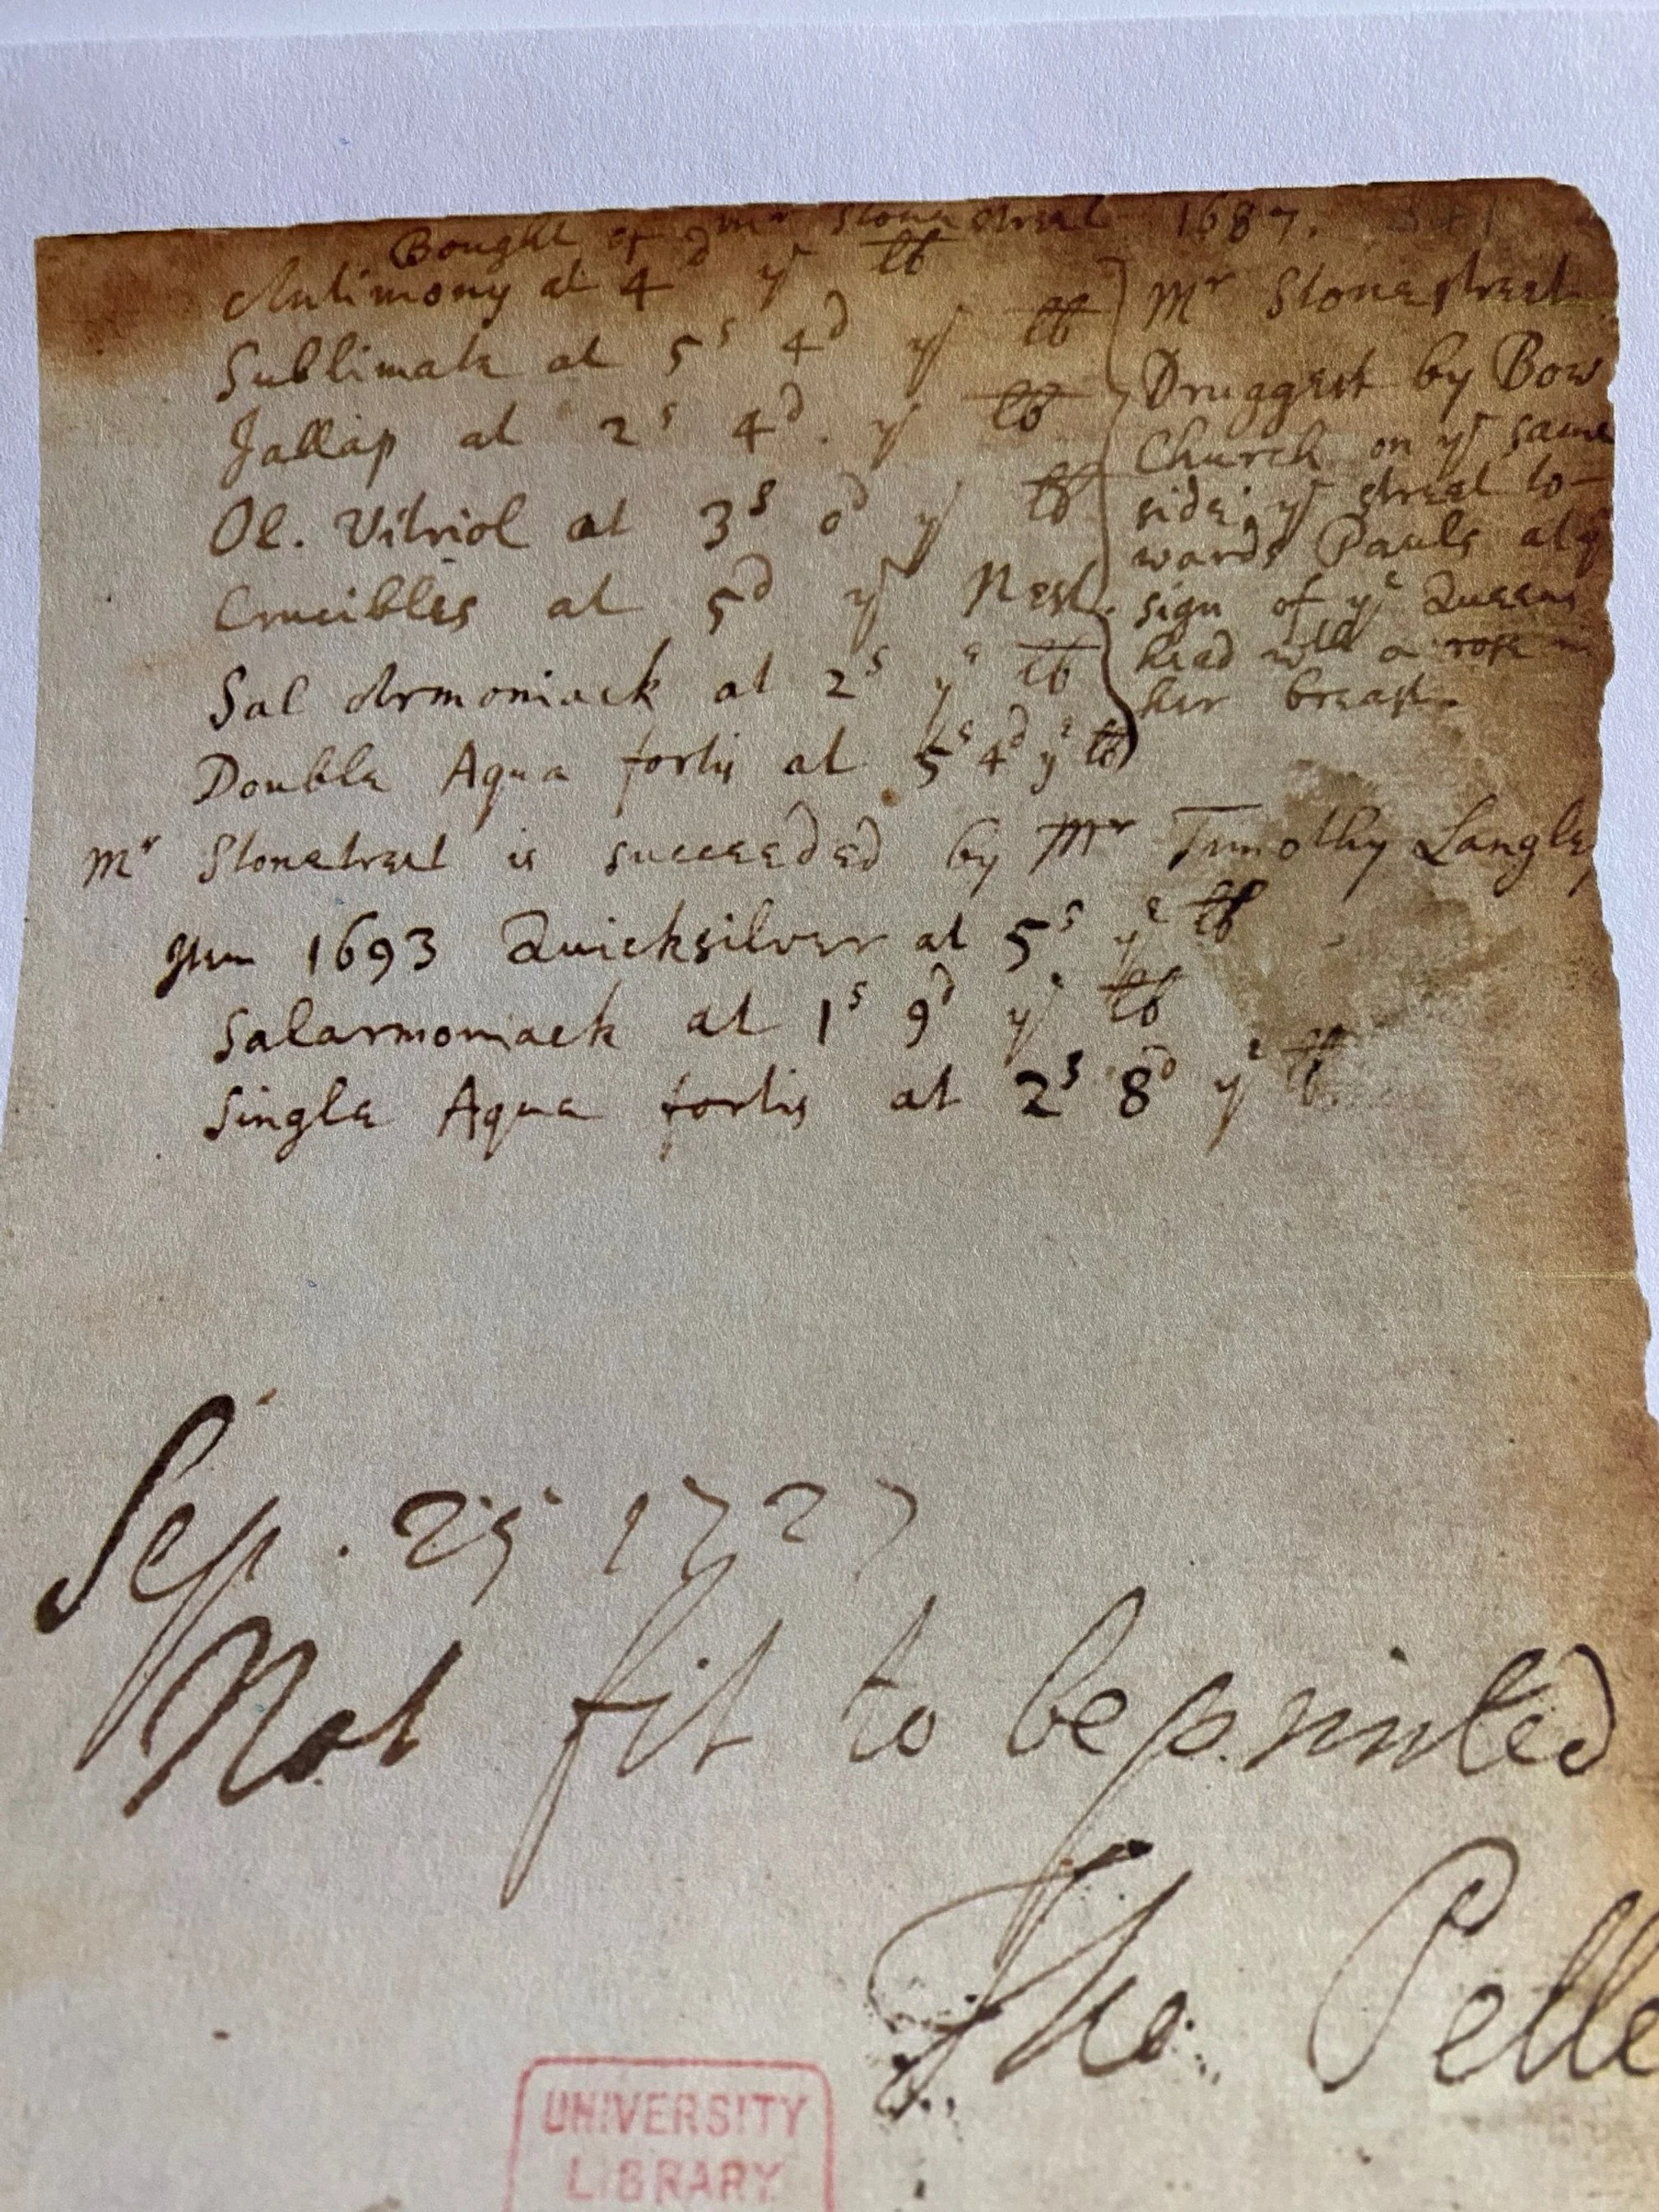 Bought of Mr Stonestreet 1687.
Antimony at 4d ye lb
Sublimate at 5s 4d ye lb
Jallap at 2s 4d. ye lb
Ol. Vitriol at 3s 0d ye lb
Crucibles at 5d ye Nest.
Sal Armoniack at 2s ye lb
Double Aqua fortis at 5s 4d ye lb
Mr Stonestreet
Druggest by Bow
Church on ye same
side ye street to-
wards Pauls at ye
sign of ye Queens
head with a rose in
her breast.
Mr Stonestreet is succeeded by Mr Timothy Langley
Item 1693 Quicksilver at 5s ye lb
Salarmoniack at 1s 9d ye lb
Single Aqua fortis at 2s 8d ye lb
Sep. 25 1727
Not fit to be printed
Tho. Pelle
UNIVERSITY
LIBRARY